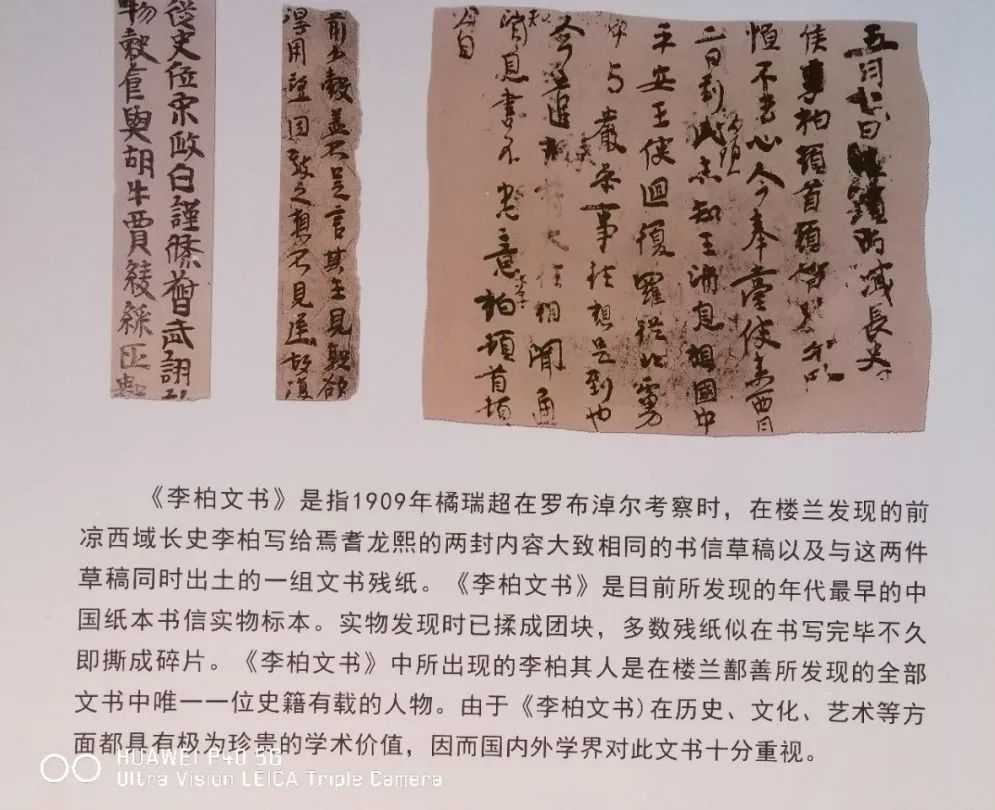 五月七日 西域長史
侯 柏頓首頓首
恒不去心今奉臺使來西月
二日到此未知王消息想國中
平安王使迴復羅從北虜
中与嚴參事往想是到也
今遣 往相聞通
知消息書不悉意 柏頓首頓
首
不足言其主見
得用 因 之 不見
從史位宋政白謹條督武詡
物穀倉與胡牛賈綾綵匹數
《李柏文书》是指1909年橘瑞超在罗布淖尔考察时，在楼兰发现的前
凉西域长史李柏写给焉耆龙熙的两封内容大致相同的书信草稿以及与这两件
草稿同时出土的一组文书残纸。《李柏文书》是目前所发现的年代最早的中
国纸本书信实物标本。实物发现时已揉成团块，多数残纸似在书写完毕不久
即撕成碎片。《李柏文书》中所出现的李柏其人是在楼兰鄯善所发现的全部
文书中唯一一位史籍有载的人物。由于《李柏文书)在历史、文化、艺术等方
面都具有极为珍贵的学术价值，因而国内外学界对此文书十分重视。
HUAWEI P40 5G
Ultra Vision LEICA Triple Camera